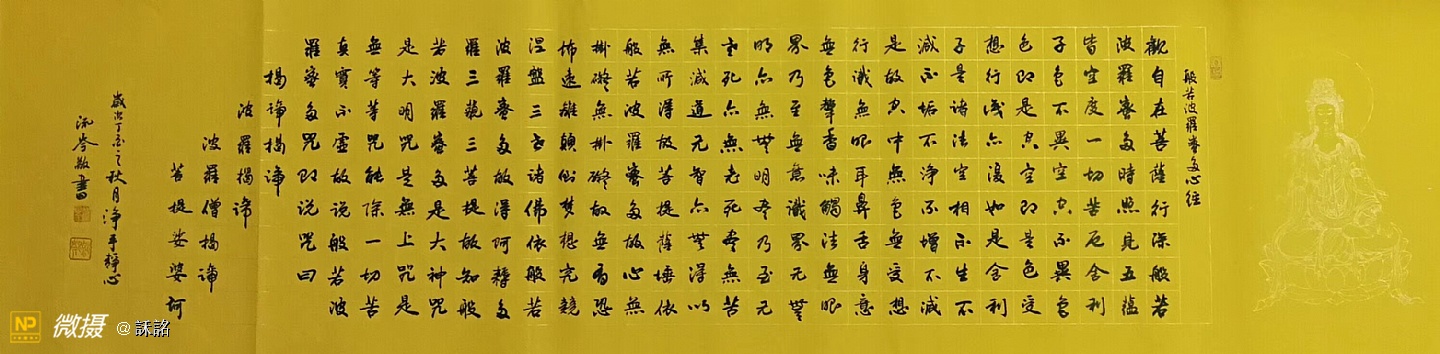 般若波羅蜜多心经
觀自在菩薩行深般若
波羅蜜多時照見五蘊
皆空度一切苦厄舍利
子色不異空空不異色
色即是空空即是色受
想行识亦復如是舍利
子是諸法空相不生不
減不垢不淨不增不減
是故空中無色無受想
行識無眼耳鼻舌身意
無色聲香味觸法無眼
界乃至無意識界无無
明亦無無明尽乃至无
老死亦無老死盡無苦
集滅道无智亦無得以
無所得故菩提薩埵依
般若波羅蜜多故心無
掛礙無掛礙故無有恐
怖遠離顛倒梦想究竟
涅盤三世諸佛依般若
波羅蜜多故得阿耨多
羅三藐三菩提故知般
若波羅蜜多是大神咒
是大明咒是無上咒是
無等等咒能除一切苦
真實不虛故说般若波
羅蜜多咒即说咒曰
揭諦揭諦
波羅揭諦
波羅僧揭諦
菩提娑婆訶
歲次丁酉之秋月淨手靜心
敬書
NP 微摄 @訸詺